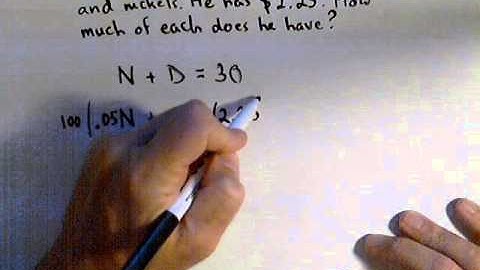 and nickels. He has $2.25. How
much of each does he have?
N + D = 30
100 (.05N + (2.25